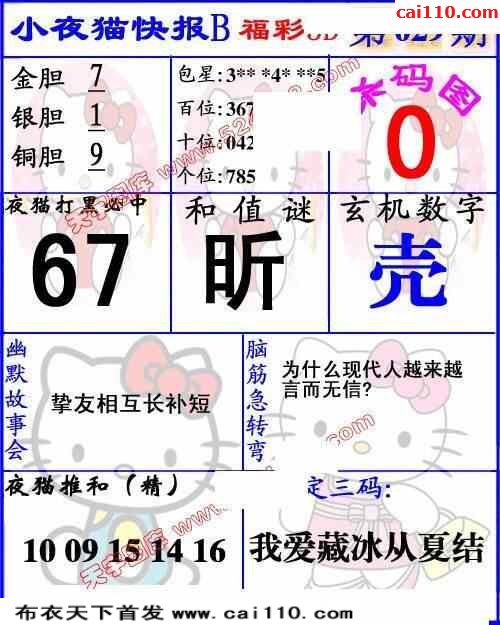 cai110.com
小夜猫快报B 福彩3D 第029期
金胆 7
银胆 1
铜胆 9
包星:3** *4* **5
百位:367
十位:042
个位:785
本码图
0
夜猫打黑必中
67
和值谜
昕
玄机数字
壳
幽默故事会
挚友相互长补短
脑筋急转弯
为什么现代人越来越
言而无信?
夜猫推和(精)
10 09 15 14 16
定三码:
我爱藏冰从夏结
布衣天下首发 www.cai110.com